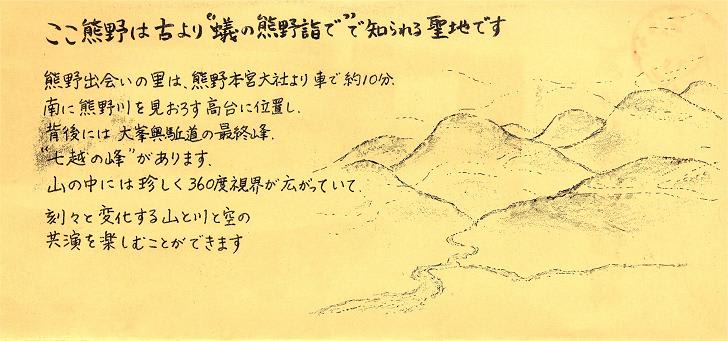 ここ熊野は古より“蟻の熊野詣で”で知られる聖地です
熊野出会いの里は、熊野本宮大社より車で約10分.
南に熊野川を見おろす高台に位置し.
背後には 大峯奥駈道の最終峰.
“七越の峰”があります.
山の中には珍しく360度視界が広がっていて.
刻々と変化する山と川と空の
共演を楽しむことができます